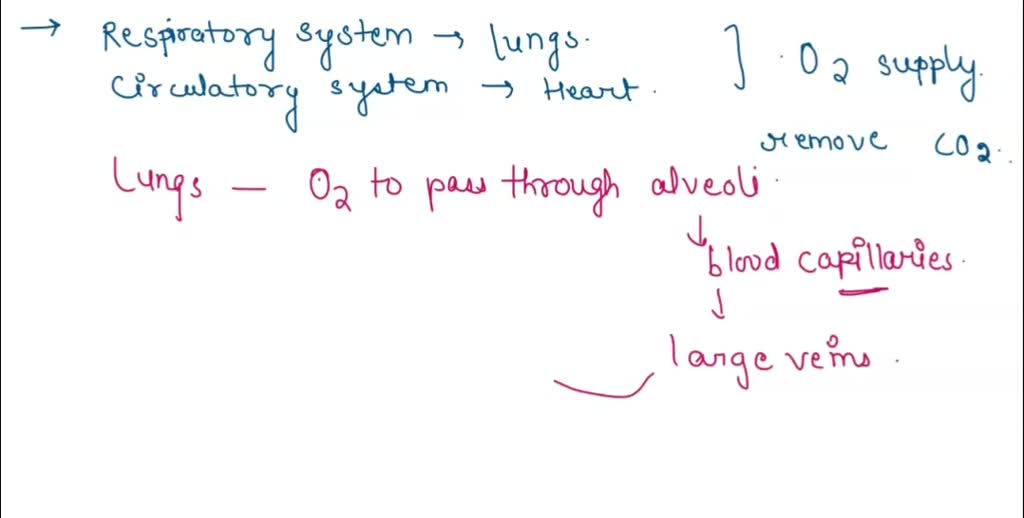 → Respiratory system → lungs.
Circulatory system → Heart.
] · O2 supply.
remove CO2..
Lungs — O2 to pass through alveoli.
↓
blood capillaries.
↓
large veins.